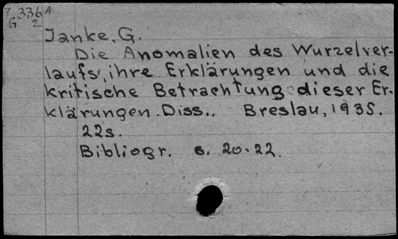 7 336 A
G 2
Janke. G.
Die Anomalien des Wurzelver-
laufs, ihre Erklärungen und die
kritische Betrachtung dieser Er-
klärungen. Diss.. Breslau, 1935.
22s.
Bibliogr. s. 20-22.